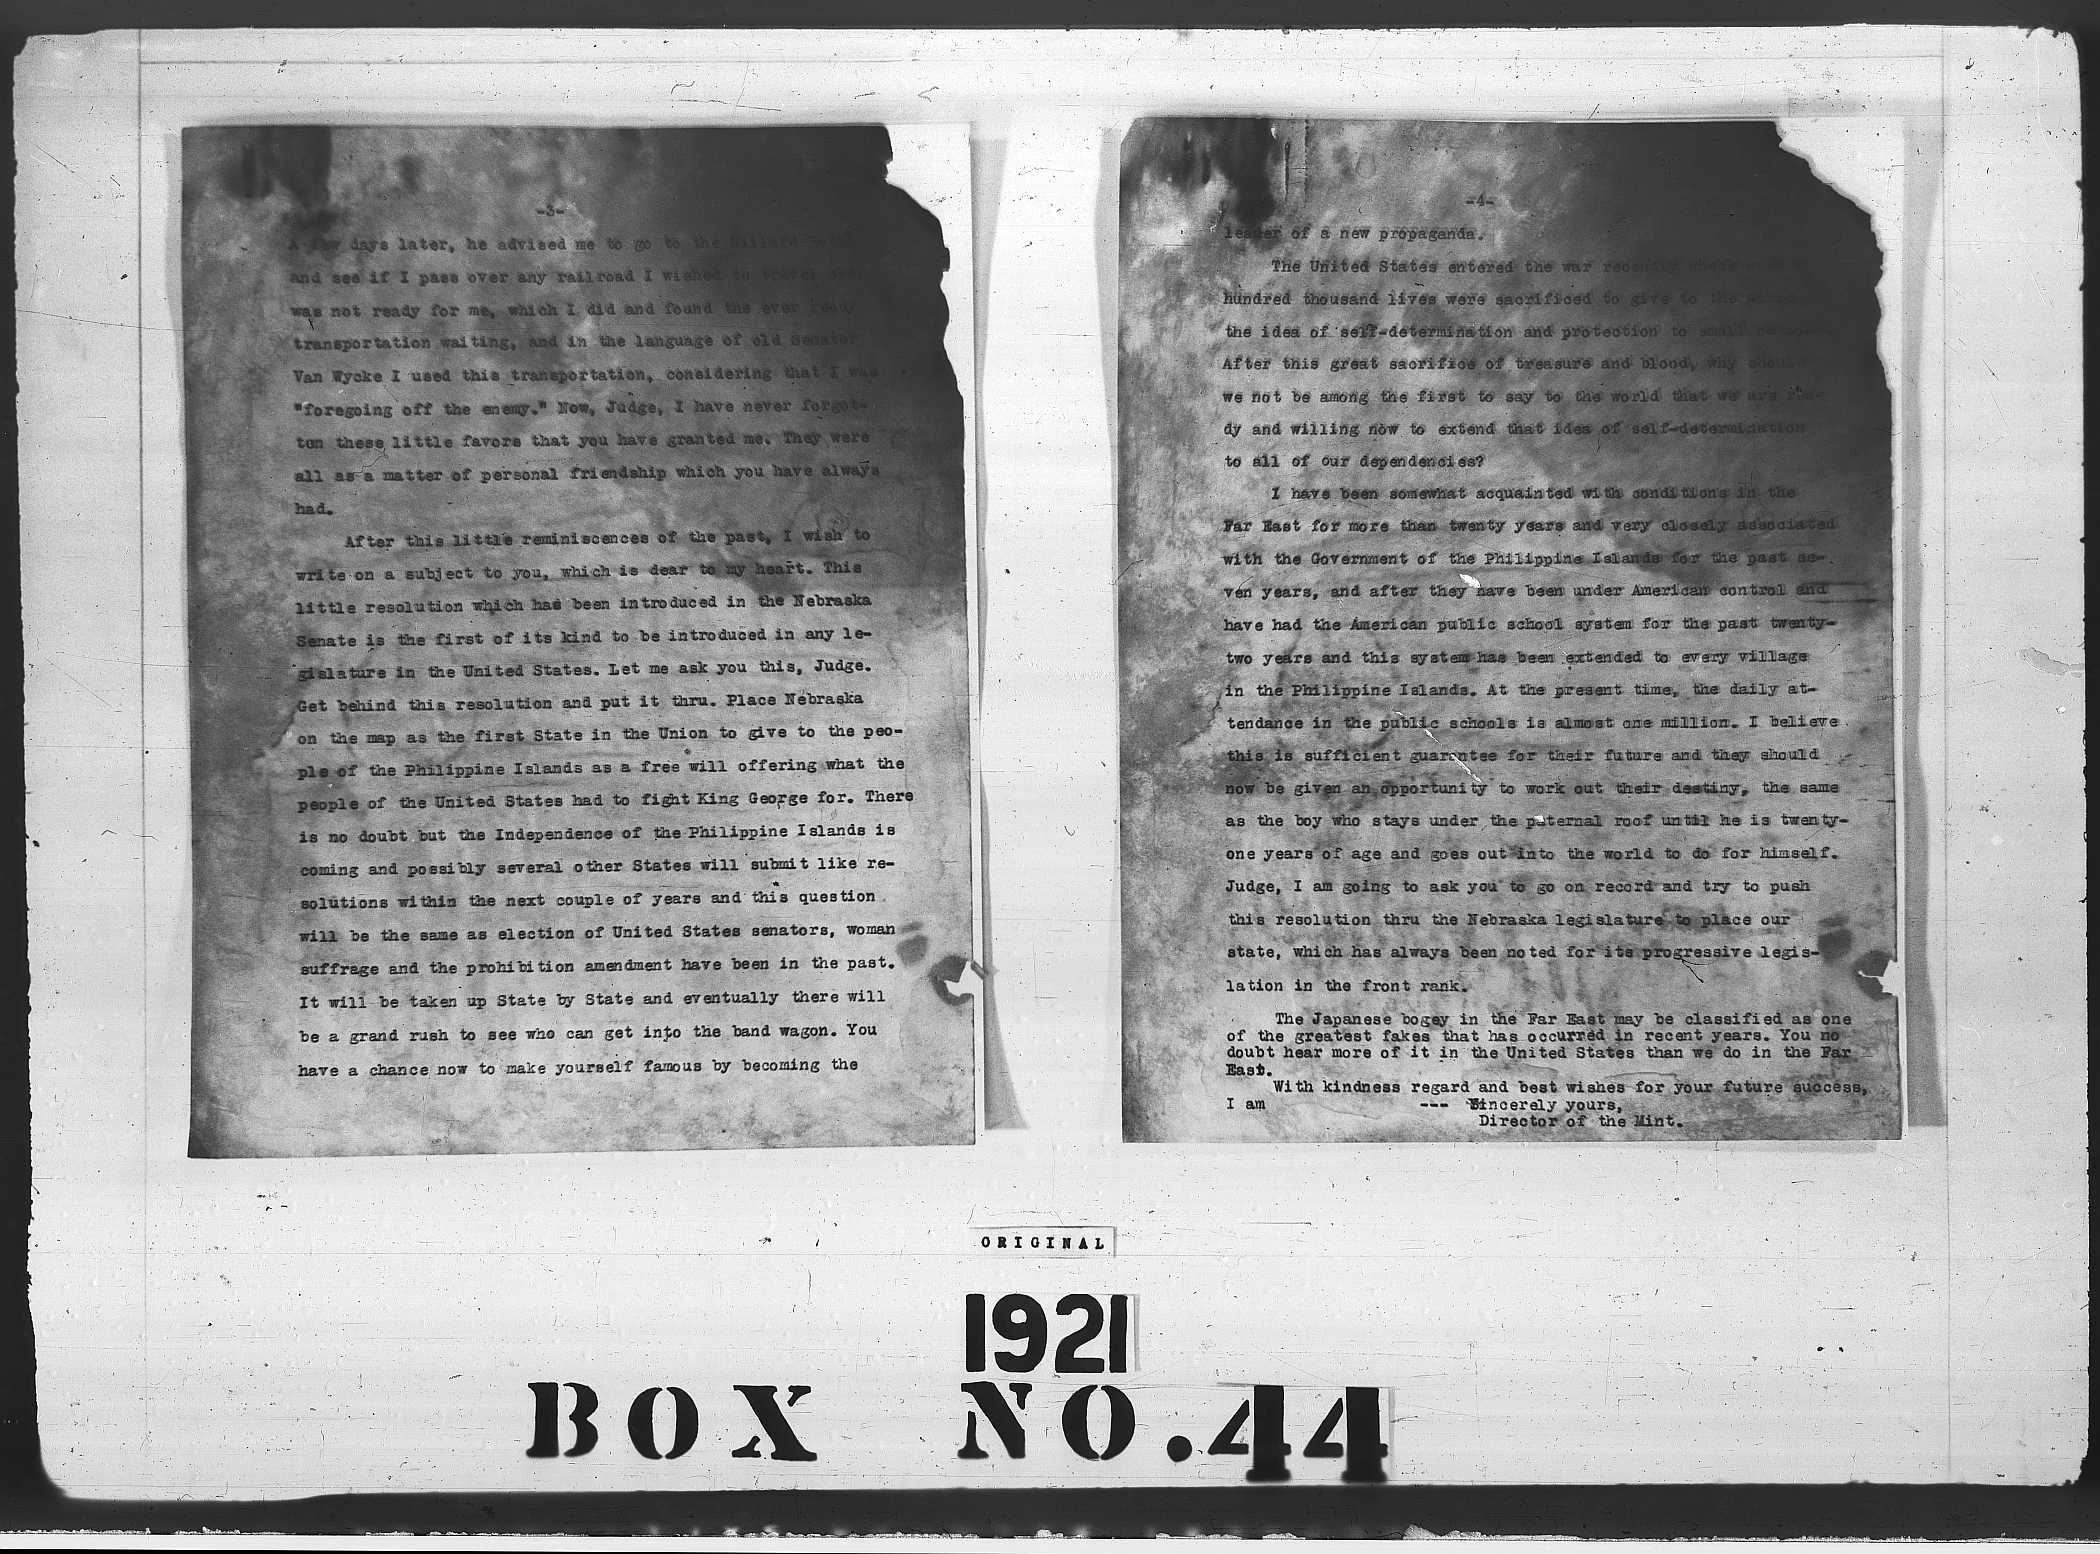 -3-
A few days later, he advised me to go to the Millard
and see if I pass over any railroad I wished to travel
was not ready for me, which I did and found the ever ready
transportation waiting, and in the language of old Senator
Van Wycke I used this transportation, considering that I was
"foregoing off the enemy." Now, Judge, I have never forgot-
ton these little favors that you have granted me. They were
all as a matter of personal friendship which you have always
had.
After this little reminiscences of the past, I wish to
write on a subject to you, which is dear to my heart. This
little resolution which has been introduced in the Nebraska
Senate is the first of its kind to be introduced in any le-
gislature in the United States. Let me ask you this, Judge.
Get behind this resolution and put it thru. Place Nebraska
on the map as the first State in the Union to give to the peo-
ple of the Philippine Islands as a free will offering what the
people of the United States had to fight King George for. There
is no doubt but the Independence of the Philippine Islands is
coming and possibly several other States will submit like re-
solutions within the next couple of years and this question
will be the same as election of United States senators, woman
suffrage and the prohibition amendment have been in the past.
It will be taken up State by State and eventually there will
be a grand rush to see who can get into the band wagon. You
have a chance now to make yourself famous by becoming the
-4-
leader of a new propaganda.
The United States entered the war recently where
hundred thousand lives were sacrificed to give to the world
the idea of self-determination and protection to small
After this great sacrifice of treasure and blood, why should
we not be among the first to say to the world that we are rea-
dy and willing now to extend that idea of self-determination
to all of our dependencies?
I have been somewhat acquainted with conditions in the
Far East for more than twenty years and very closely associated
with the Government of the Philippine Islands for the past se-
ven years, and after they have been under American control and
have had the American public school system for the past twenty-
two years and this system has been extended to every village
in the Philippine Islands. At the present time, the daily at-
tendance in the public schools is almost one million. I believe
this is sufficient guarantee for their future and they should
now be given an opportunity to work out their destiny, the same
as the boy who stays under the paternal roof until he is twenty-
one years of age and goes out into the world to do for himself.
Judge, I am going to ask you to go on record and try to push
this resolution thru the Nebraska legislature to place our
state, which has always been noted for its progressive legis-
lation in the front rank.
The Japanese bogey in the Far East may be classified as one
of the greatest fakes that has occurred in recent years. You no
doubt hear more of it in the United States than we do in the Far
East.
With kindness regard and best wishes for your future success,
I am --- Sincerely yours,
Director of the Mint.
ORIGINAL
1921
BOX NO.44